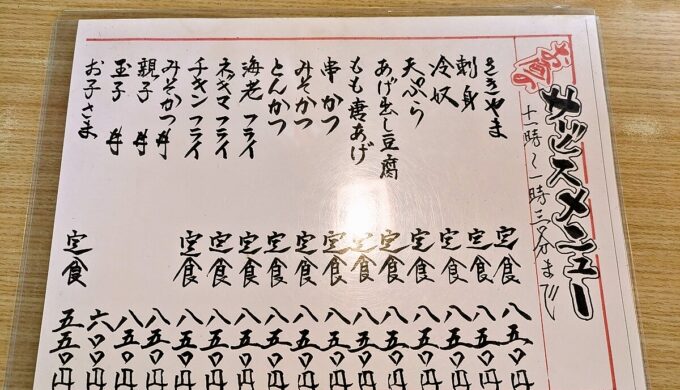 サービスメニュー
十一時~一時三十分まで
定食 八五〇円
刺身 定食 八五〇円
冷奴 定食 八五〇円
天ぷら 定食 八五〇円
あげ出し豆腐 定食 八五〇円
もも唐あげ 定食 八五〇円
串かつ 定食 八五〇円
みそかつ 定食 八五〇円
とんかつ 定食 八五〇円
海老フライ 定食 八五〇円
ネギマフライ 定食 八五〇円
チキンフライ 定食 八五〇円
みそかつ丼 八五〇円
親子丼 八五〇円
玉子丼 六〇〇円
お子さま 定食 五五〇円